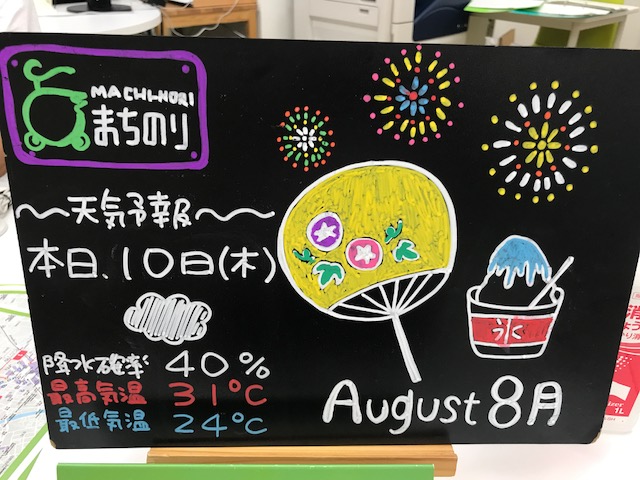 MACHI-NORI
まちのり
〜天気予報〜
本日、10日(木)
降水確率 40%
最高気温 31℃
最低気温 24℃
氷
August 8月
1L